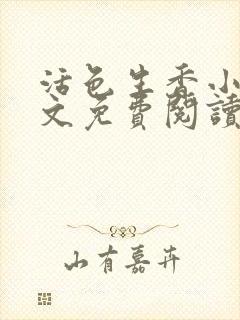 活色生香小
文免費閱讀
山有嘉卉